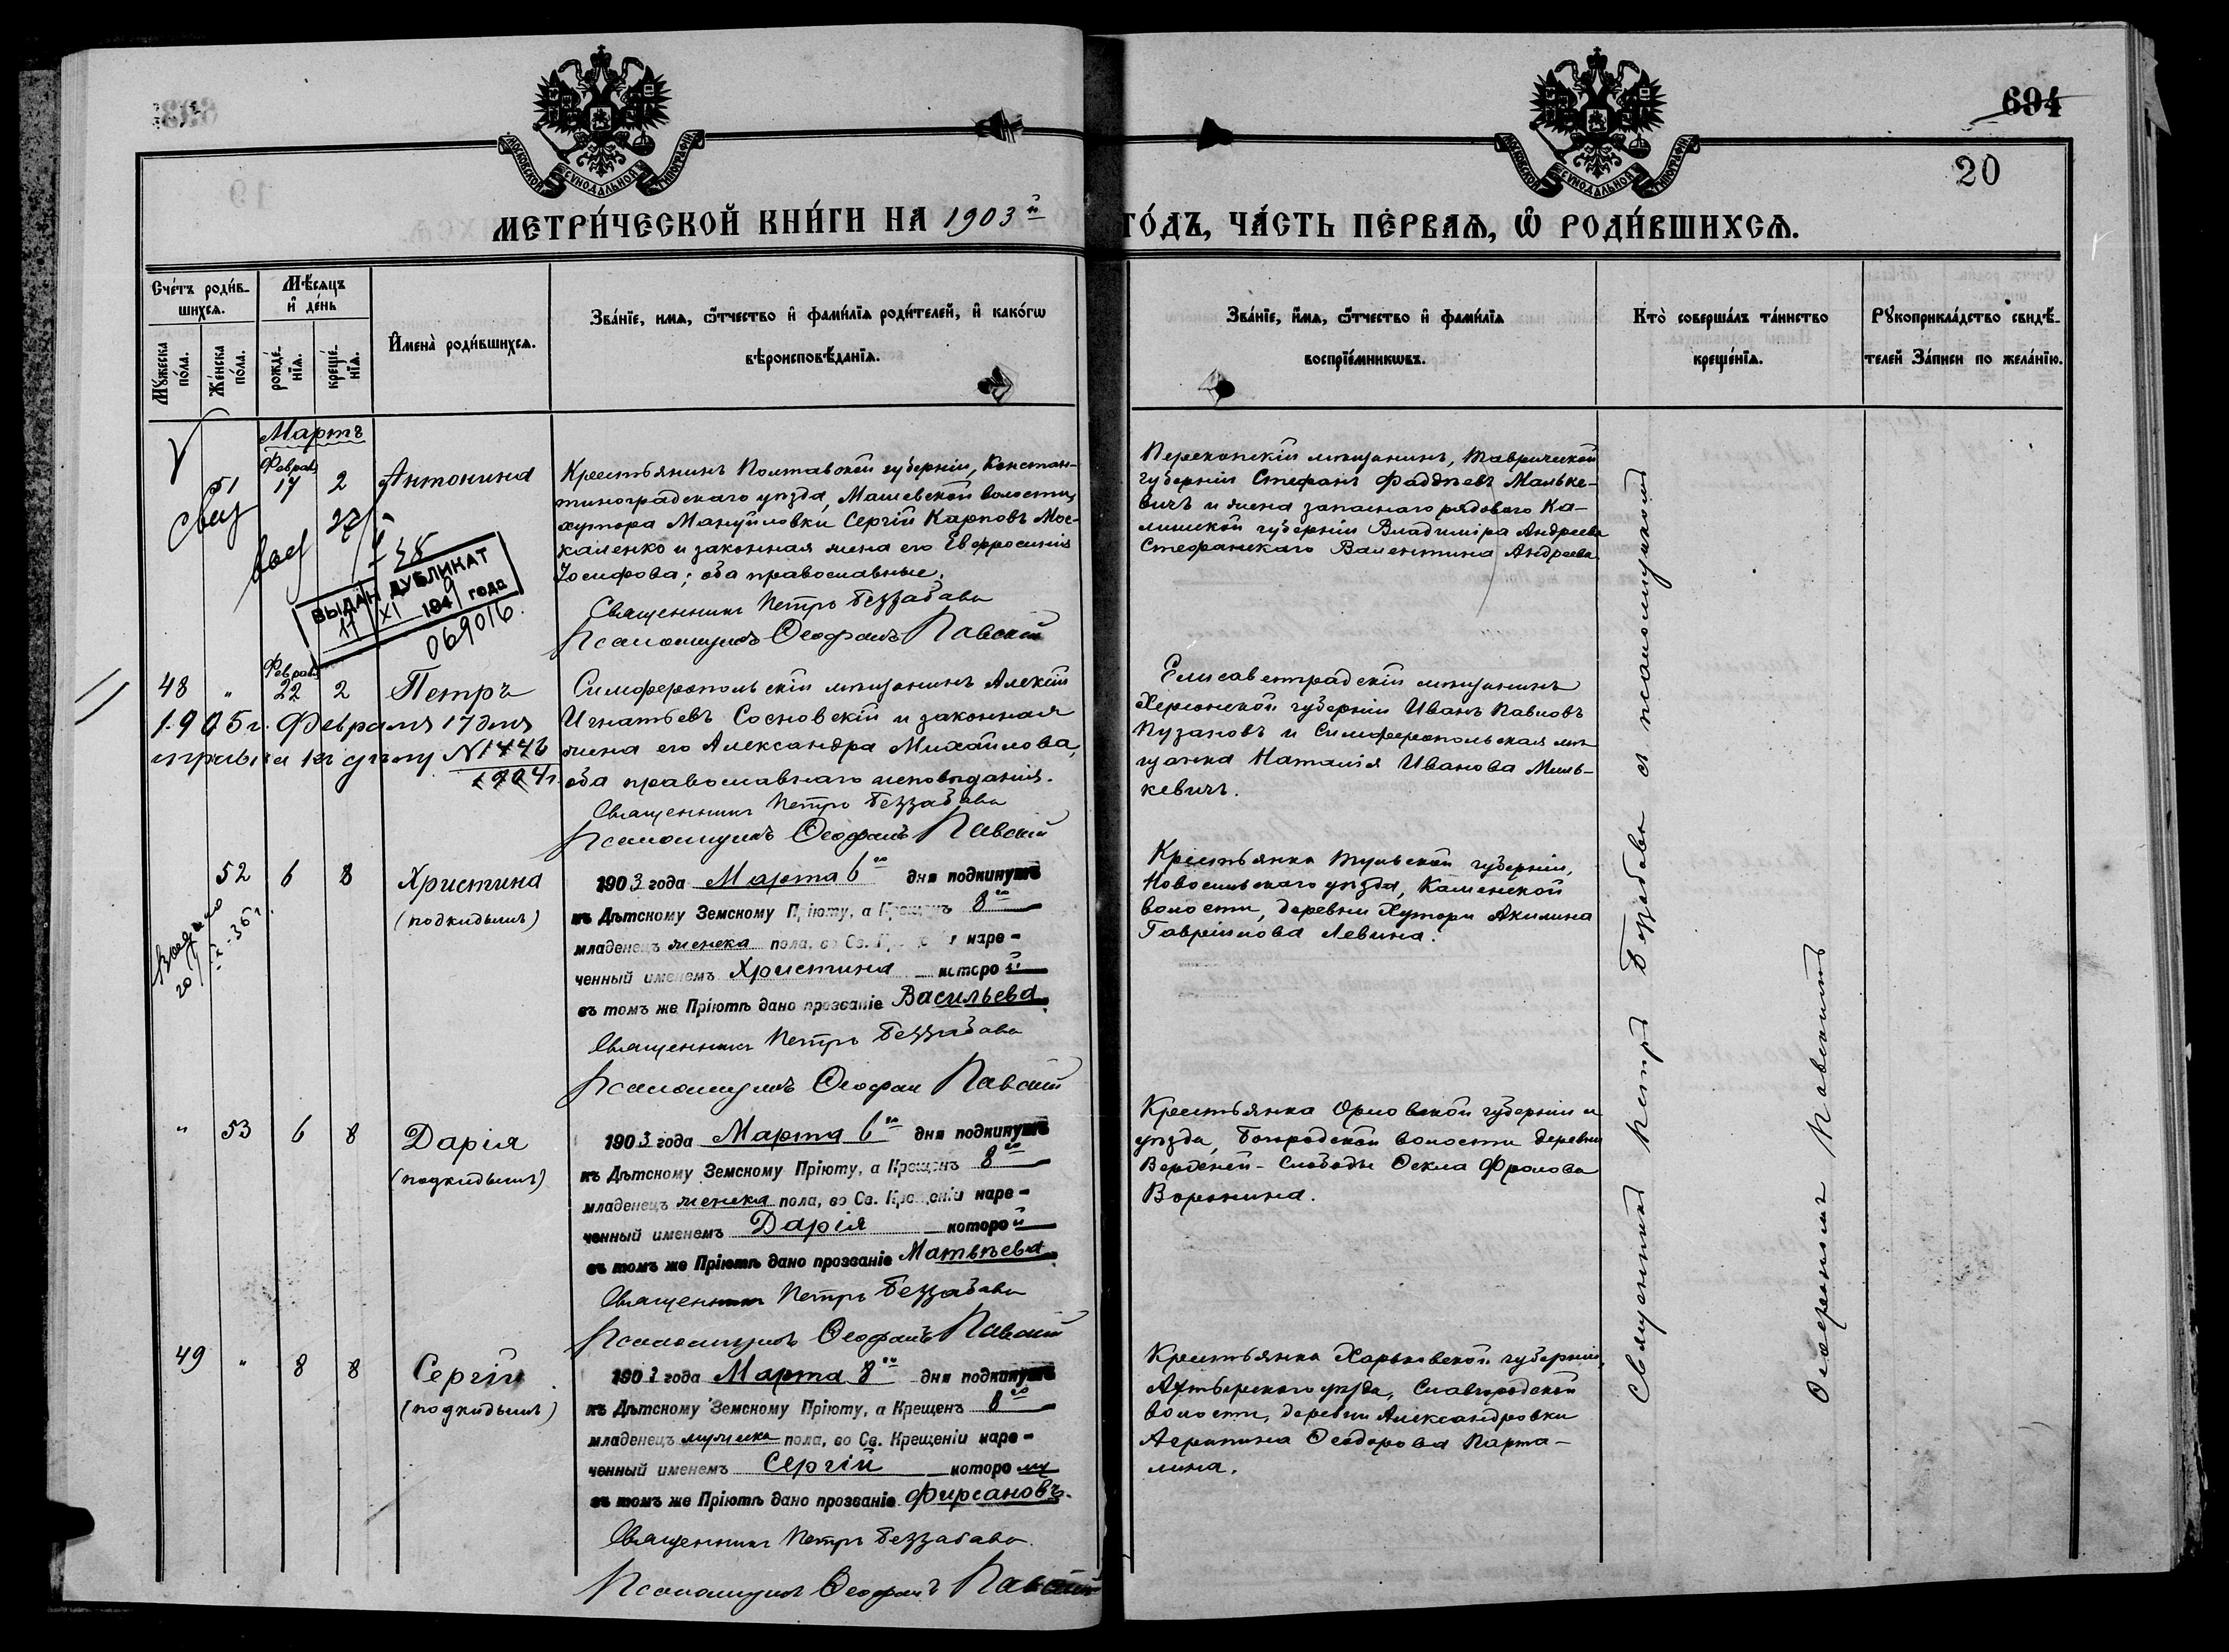 694
20
МОСКОВСКОЙ СУНОДАЛЬНОЙ ТИПОГРАФІИ
МОСКОВСКОЙ СУНОДАЛЬНОЙ ТИПОГРАФІИ
МЕТРИ́ЧЕСКОЙ КНИ́ГИ НА 1903й
ГО́ДЪ, ЧА́СТЬ ПЕ́РВАѦ, Ѡ РОДИ́ВШИХСѦ.
Счéтъ роди́в-
шихсѧ.
Мꙋжеска
по́ла.
Же́нска
по́ла.
Мѣ́сѧцъ
и҆ де́нь
рожде́-
нїѧ.
креще́-
нїѧ.
И҆мена̀ роди́вшихсѧ.
Зва́нїе, имѧ, ѻ҆́тчество и҆ фами́лїѧ роди́телей, и҆ како́гѡ
вѣроисповѣ́данїѧ.
Зва́нїе, и҆́мѧ, ѻ҆́тчество и҆ фами́лїѧ
воспрїе́мникѡвъ.
Кто̀ соверша́лъ та́инство
креще́нїѧ.
Рꙋкоприкла́дство свидѣ́-
телей За́писи по жела́нїю.
Мартъ
Феврал
51 17 2 Антонина
Крестьянинъ Полтавской губерніи, Констан-
тиноградскаго уѣзда, Машевской волости,
хутора Мануйловки Сергій Карповъ Мос-
каленко и законная жена его Евфросинія
Іосифова; оба православные.
Священникъ Петръ Беззабава
Псаломщикъ Ѳеофанъ Павскій
Перекопскій мѣщанинъ, Таврической
губерніи Стефанъ Фаддѣевъ Мальке-
вичъ и жена запаснаго рядового Ка-
лишской губерніи Владиміра Андреева
Стефанскаго Валентина Андреева
ВЫДАН ДУБЛИКАТ
11 XI 1949 года
069016.
Феврал
48 " 22 2 Петръ
1905 г. Февраля 17 дня
справка къ дѣлу № 1446
1904 г.
Симферопольскій мѣщанинъ Алексій
Игнатьевъ Сосновскій и законная
жена его Александра Михайлова,
оба православнаго исповѣданія.
Священникъ Петръ Беззабава
Псаломщикъ Ѳеофанъ Павскій
Елисаветградскій мѣщанинъ
Херсонской губерніи Иванъ Павловъ
Пузановъ и Симферопольская мѣ-
щанка Наталія Иванова Миль-
кевичъ.
52 6 8 Христина
(подкидышъ)
1903 года Марта 6го дня подкинутъ
къ Дѣтскому Земскому Пріюту, а Крещенъ 8го
младенецъ женска пола, во Св. Крещеніи наре-
ченный именемъ Христина которой
въ томъ же Пріютѣ дано прозваніе Васильева.
Священникъ Петръ Беззабава
Псаломщикъ Ѳеофанъ Павскій
Крестьянка Тульской губерніи,
Новосильскаго уѣзда, Каменской
волости, деревни Хутори Акилина
Гавріилова Левина.
" 53 6 8 Дарія
(подкидышъ)
1903 года Марта 6го дня подкинутъ
къ Дѣтскому Земскому Пріюту, а Крещенъ 8го
младенецъ женска пола, во Св. Крещеніи наре-
ченный именемъ Дарія которой
въ томъ же Пріютѣ дано прозваніе Матвѣева
Священникъ Петръ Беззабава
Псаломщикъ Ѳеофанъ Павскій
Крестьянка Орловской губерніи и
уѣзда, Богородской волости деревни
Слободы Ѳекла Фролова
Воронина.
49 " 8 8 Сергій
(подкидышъ)
1903 года Марта 8го дня подкинутъ
къ Дѣтскому Земскому Пріюту, а Крещенъ 8го
младенецъ мужска пола, во Св. Крещеніи наре-
ченный именемъ Сергій которому
въ томъ же Пріютѣ дано прозваніе Фирсановъ.
Священникъ Петръ Беззабава.
Псаломщикъ Ѳеофанъ Павскій
Крестьянка Харьковской губерніи,
Ахтырскаго уѣзда, Славгородской
волости, деревни Александровки
Агрипина Ѳеодорова Парта-
лина.
Священникъ Петръ Беззабава съ псаломщикомъ
Ѳеофаномъ Павскимъ